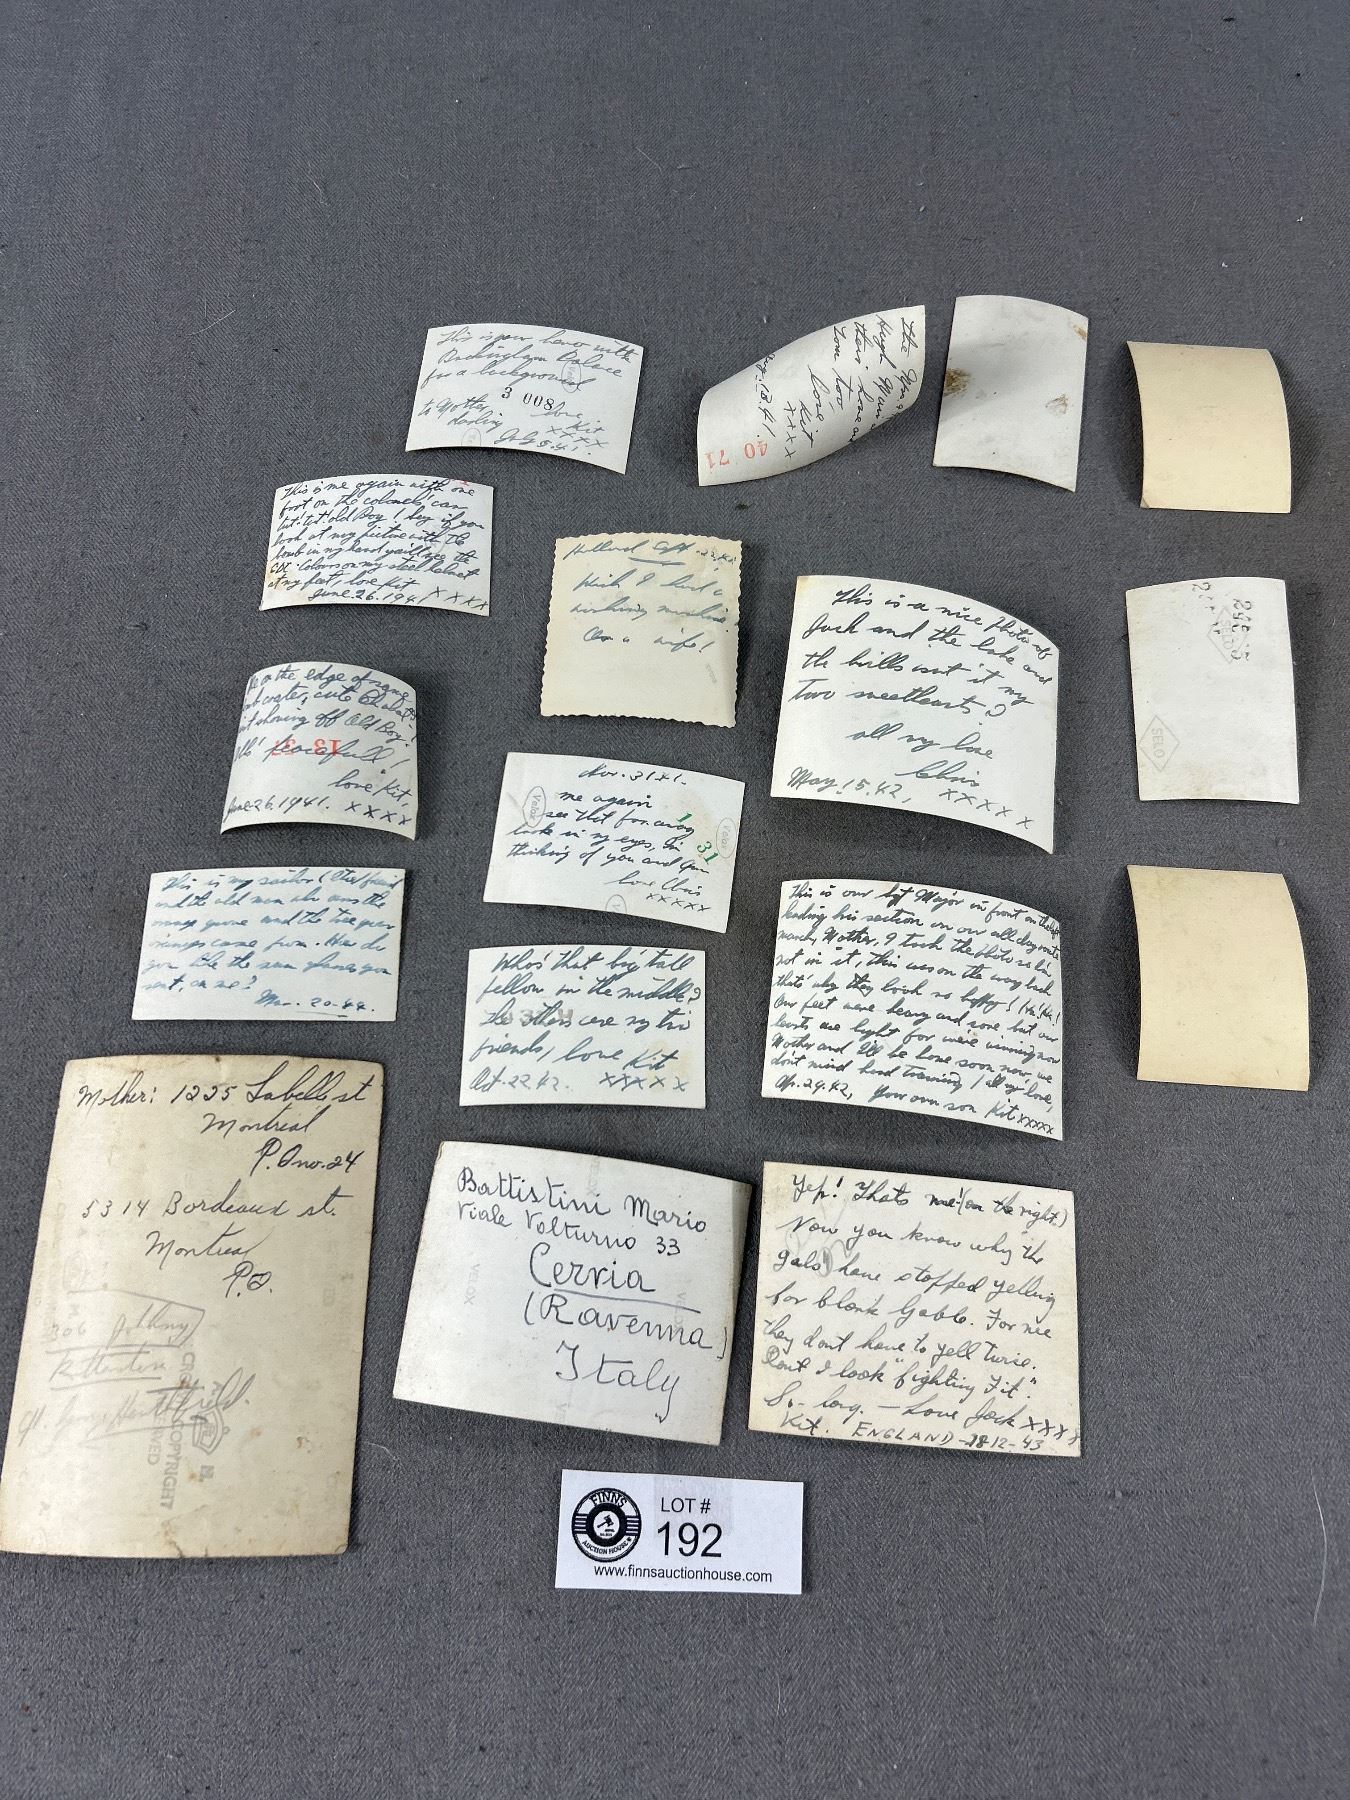 This is your hero with
Buckingham Palace
for a background
3 008
to Mother
darling
love
Kit
xxxx
July 5.41.
the
High
Tom too.
love
Kit
xxxx
40 71
This is me again with one
foot on the colonels' car,
but tut! old Boy! hey if you
look at my picture with the
bomb in my hand you'll see the
colours on my steel helmet
at my feet, love Kit
June.26.1941 xxxx
Holland
Wish I had a
washing machine.
Or a wife!
This is a nice photo of
Jack and the lake and
the hills isn't it my
two sweethearts?
all my love
Chris
May.15.42. xxxx
SELO
SELO
on the edge of some
crater, cute
showing off Old Boy!
peacefull!
13 31
love Kit.
June 26.1941. xxxx
Nov.31.41.
me again
see that faraway
look in my eyes, I'm
thinking of you and
love Chris
xxxxx
Velox
Velox
1
31
This is my sailor friend
and the old man who owns the
orange grove and the tree your
oranges came from. How do
you like the sun glasses you
sent, on me?
Mar. 20-44.
Who's that big tall
fellow in the middle?
the others are my two
friends, love Kit
Oct.22.42. xxxxx
This is our Major in front on the left
leading his section on our all day route
march, Mother, I took the photo so I'm
not in it, this was on the way back
that's why they look so happy! Ha! Ha!
Our feet were heavy and sore but our
hearts are light for we're winning now
Mother and I'll be home soon now, we
don't mind hard training! all my love,
Ap.29.42, Your own son Kit xxxxx
Mother: 1225 Labelle st
Montreal
P.Q no. 24
5314 Bordeaux st.
Montreal
P.Q.
306 Johnny
COPYRIGHT
Battistini Mario
Viale Volturno 33
Cervia
(Ravenna)
Italy
VELOX
Yep! Thats me! (on the right)
Now you know why the
gals have stopped yelling
for Clark Gable. For me
they dont have to yell twice.
Dont I look "fighting Fit."
So- long. - Love Jack xxxx
Kit. ENGLAND -28-12-43
FINNS
AUCTION HOUSE
LOT #
192
www.finnsauctionhouse.com